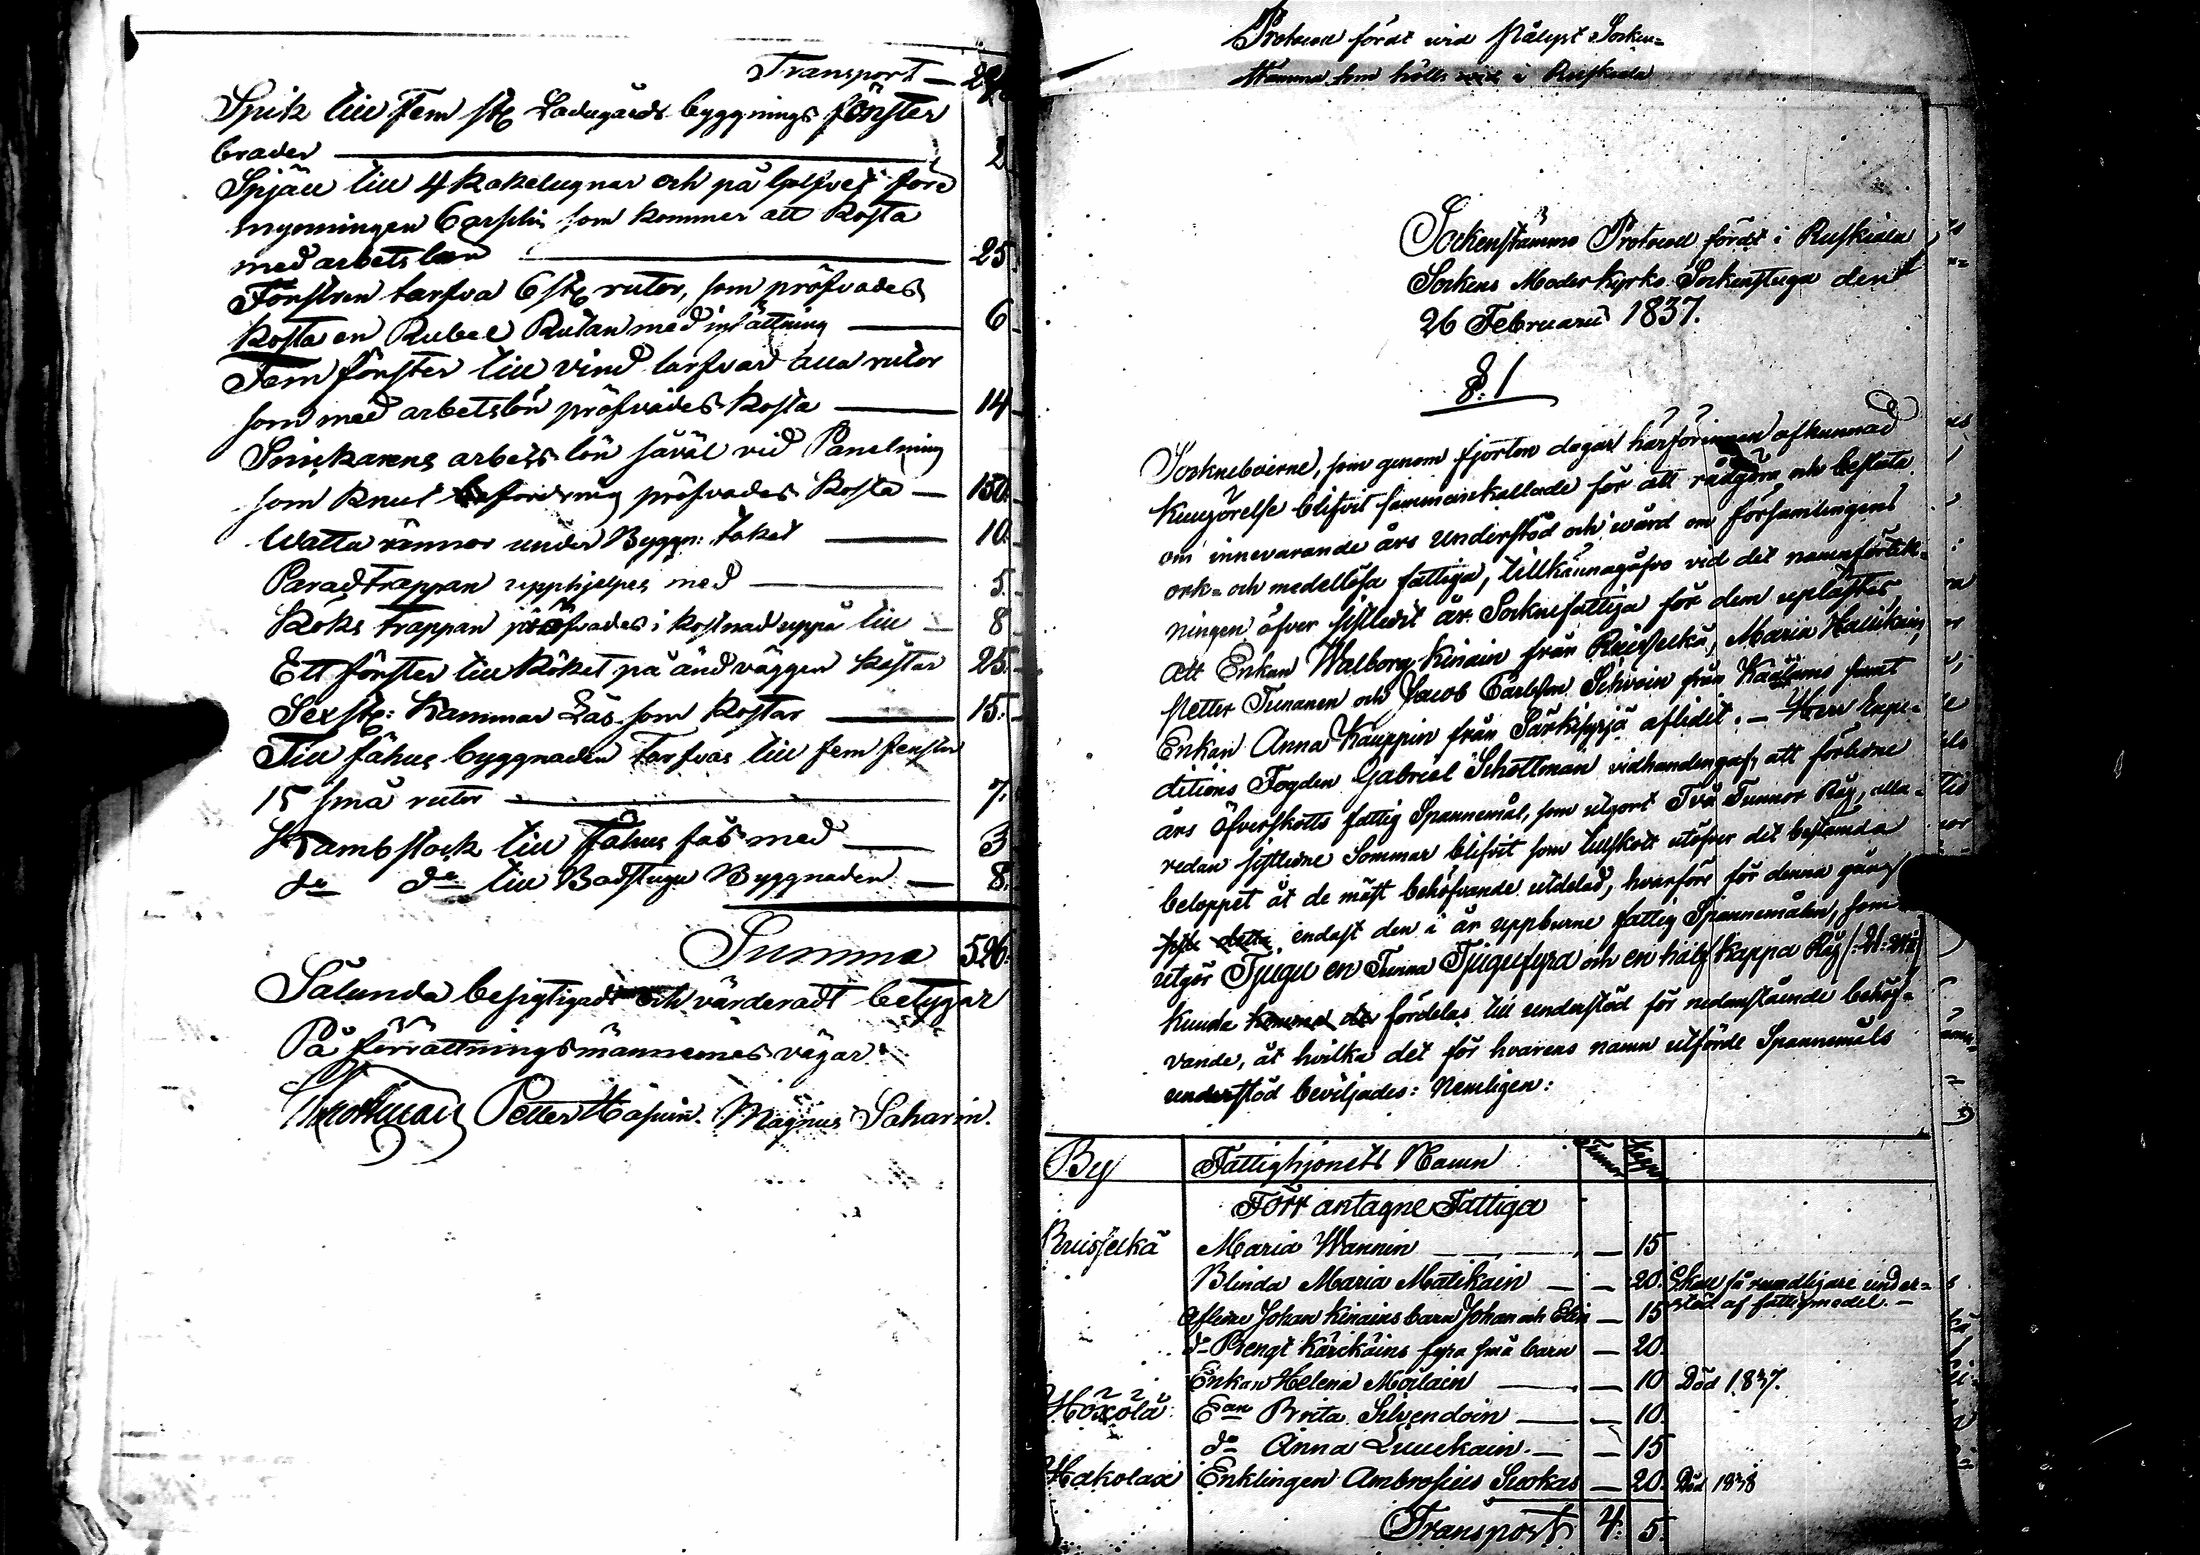 Transport — 2
Spik till Fem st. Ladugårds byggnings fönster
brader — 2
Spjäll till 4 Kakelugnar och på Golfvet före
mynningen 6 som kommer att Kosta
med arbetslön — 25.
Fönstren tarfva 6 st. rutor, som pröfvades
Kosta en Rubel Rutan med insättning — 6
Fem fönster till vind tarfvar alla rutor
som med arbetslön pröfvades Kosta — 14
Snickarens arbetslön såväl vid Panelning
som Knut befordring pröfvades Kosta — 150.
Watta rännor under Byggn: taket — 10.
Paradtrappan upphjelpes med — 5.
Köks trappan pröfvades i kostnad uppå till — 8
Ett fönster till Köket på ändväggen Kostar 25.
Sex st: Kammar Lås som Kostar — 15.
Till fähus byggnaden Tarfvas till fem fenster
15 små rutor — 7.
Kambstock till Fähus fås med — 3
do do till Badstugu Byggnaden — 8.
Summa 526.
Sålunda besigtigadt och värderadt betygar
På förrättningsmännernes vägar:
Schottman Petter Hassin. Magnus Saharin.
Protocoll fördt vid Pålyst Socken=
Stämma som hölls i Ruskeala
Sockenstämmo Protocoll fördt i Ruskeala
Sockens Moderkyrko Sockenstuga den
26 Februarii 1837.
§. 1
Sockneboerne, som genom fjorton dagar härföringen afkunnad
Kungörelse blifvit sammankallade för att rådgöra och besluta
om innevarande års understöd och wård om församlingens
ork= och medellösa fattiga, tillkännagåfvo vid det namnförtek=
ningen öfver sistledit år Socknefattiga för dem uplästes,
att Enkan Walborg Kinain från Ruisselkä, Maria Hallikain,
Petter Tunanen och Jacob Carlsson Sihvoin från Kaalamo samt
Enkan Anna Kauppin från Särkisyrjä aflidit. — Herr Expe=
ditions Fogden Gabriel Schottman vidhandengaf, att förledne
års öfverskotts fattig Spannemål, som utgort Två Tunnor Råg, alla=
redan sistledne Sommar blifvit som tillskott utöfver det bestämda
beloppet åt de mäst behöfvande utdelad, hvarföre för denna gång
endast den i år uppburne fattig Spannemålen, som
utgör Tjugu en Tunna Tjugufyra och en half kappa Råg
kunde komma att fördelas till understöd för nedanstående behöf=
vande, åt hvilka det för hvarens namn utförde Spannemåls
understöd beviljades: Nemligen:
By Fattighjonets Namn Tunnor Kappar
Förr antagne Fattiga
Ruisselkä Maria Wannin — — 15
Blinda Maria Matikain — — 20. Skall få rundligare under=
stöd af fattigmedel. —
Aflidne Johan Kinains barn Johan och Elin — 15
do Bengt Kärckäins fyra små barn — 20.
Enkan Helena Moilain — — 10 Död 1837.
Höxölä Ean Brita Silvendoin — — 10.
do Anna Luuckain. — — 15
Hakolax Enklingen Ambrosius Suokas — 20. Död 1838
Transport 4. 5.